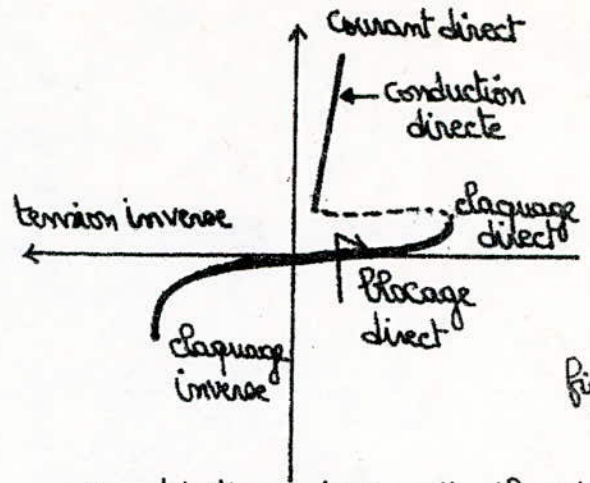 courant direct
conduction
directe
tension inverse
claquage
direct
blocage
direct
claquage
inverse